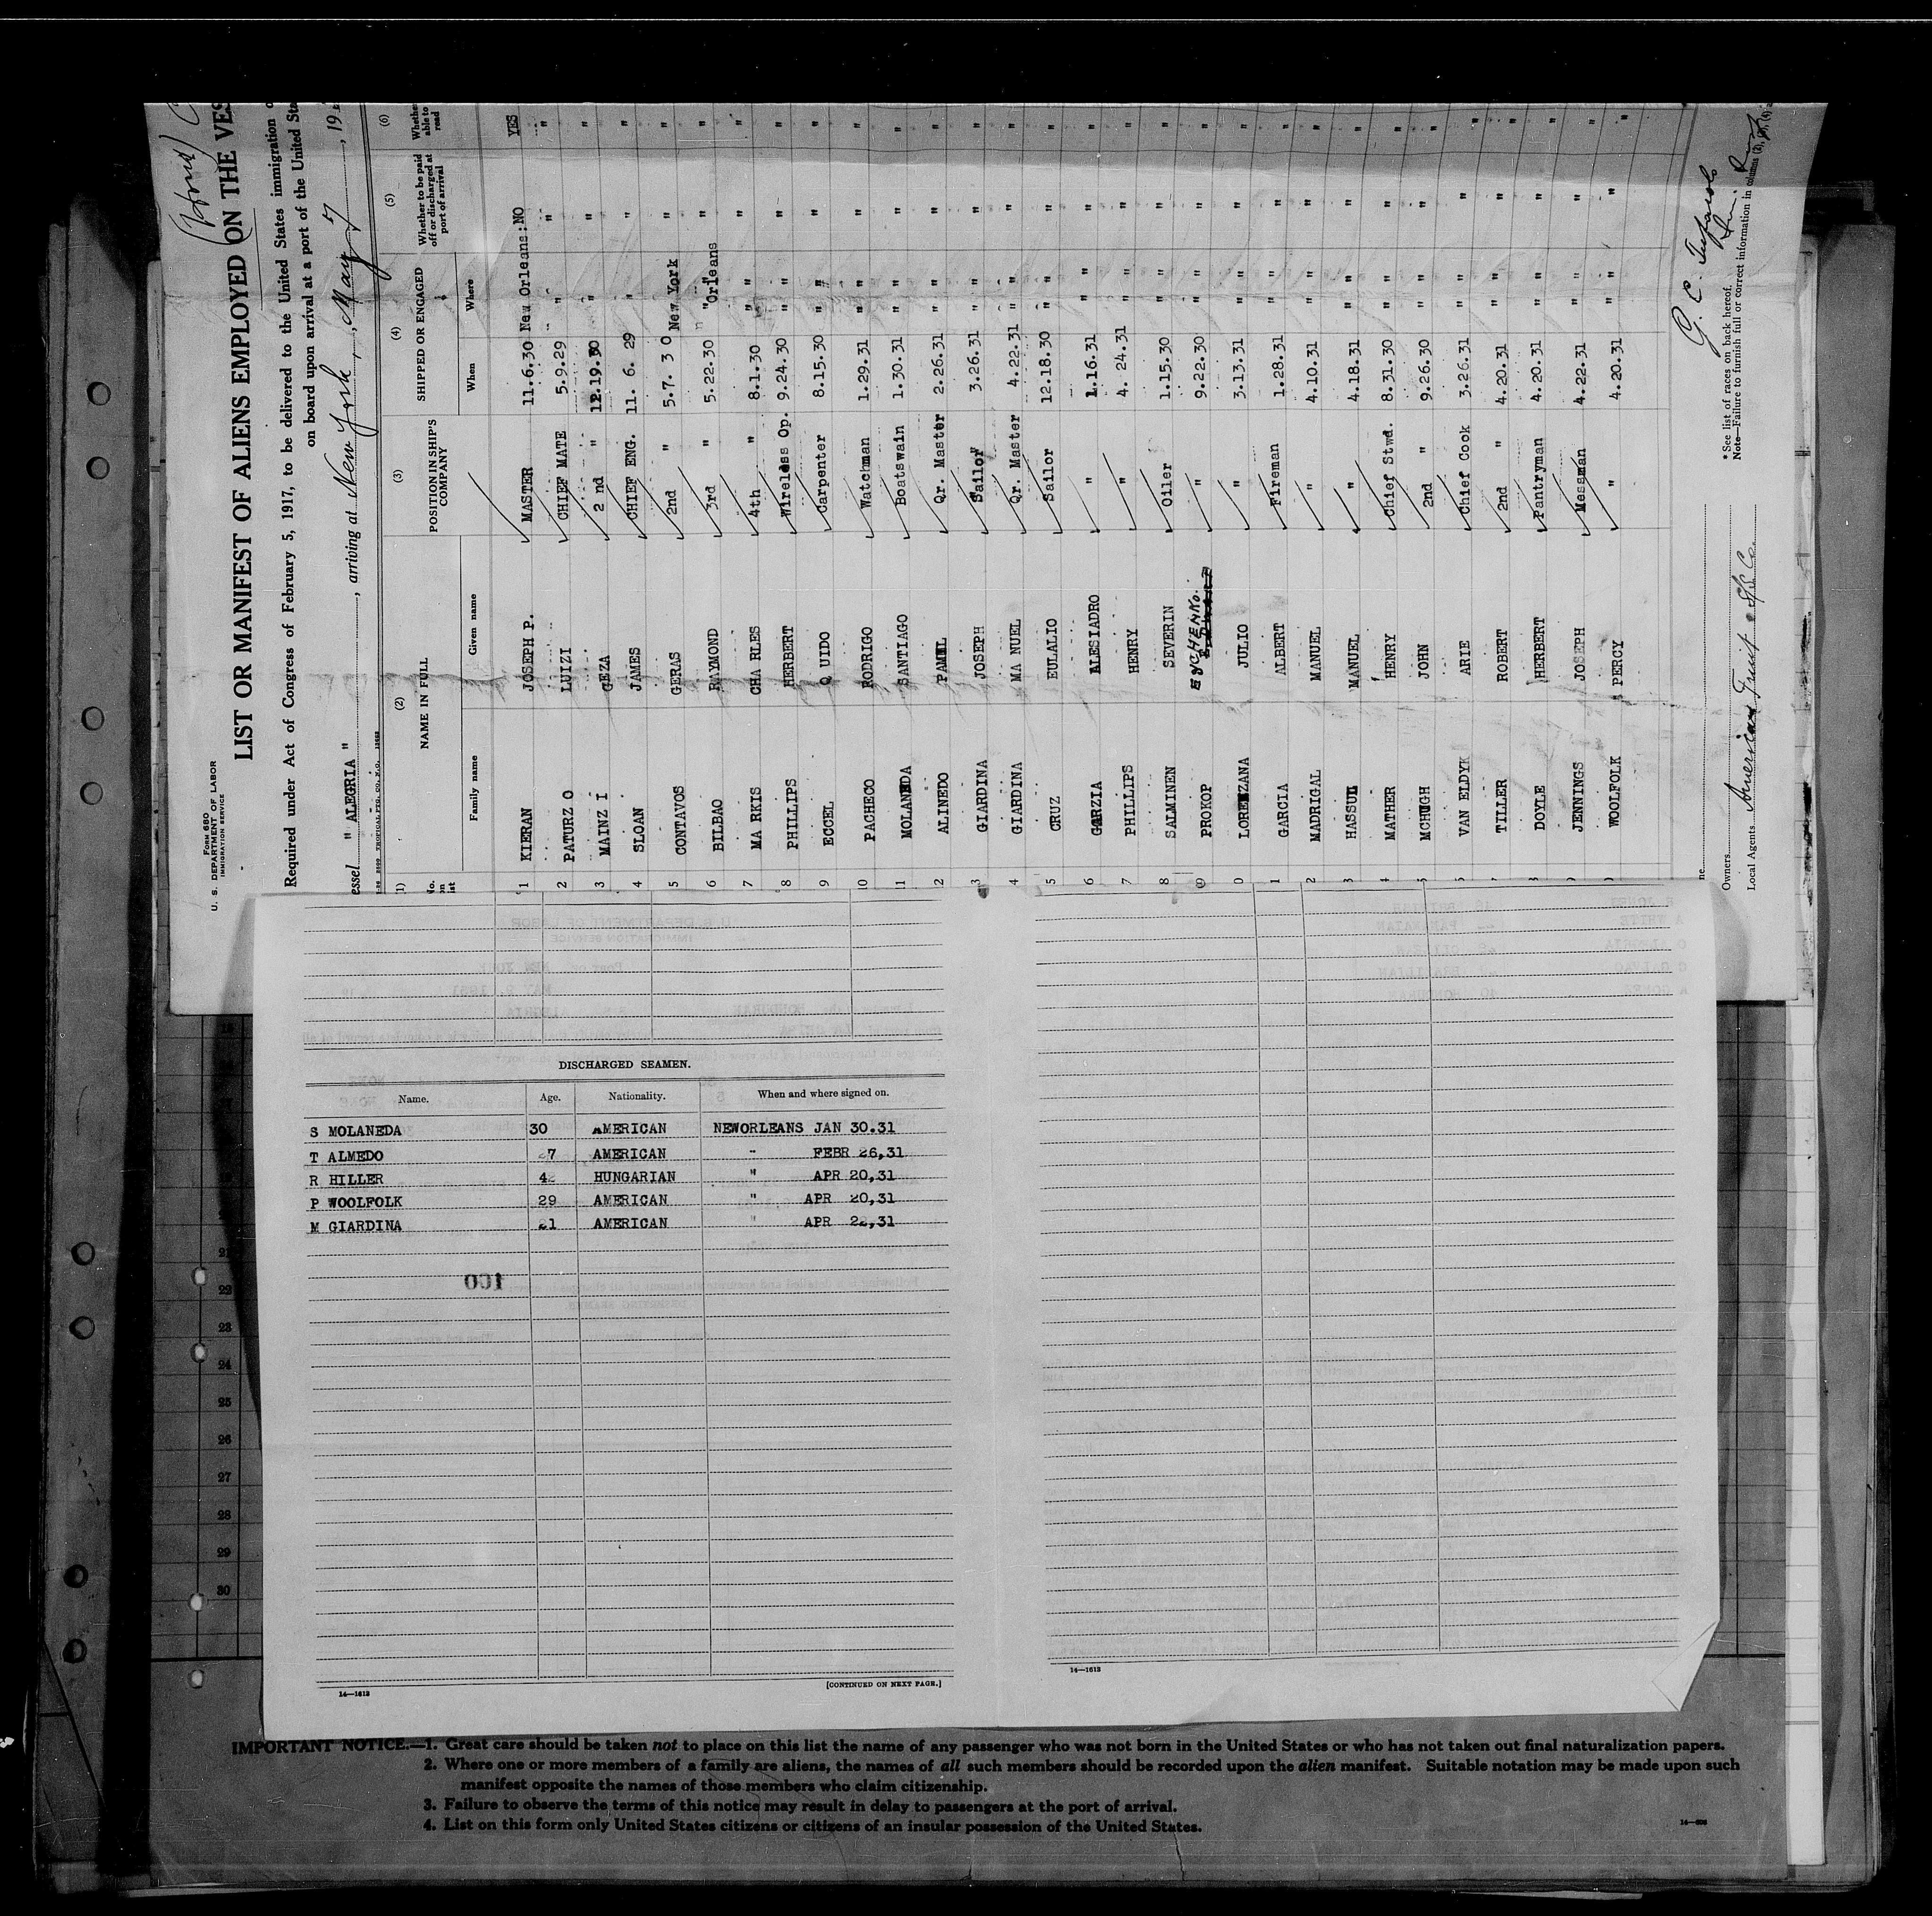 FORM 680
U. S. DEPARTMENT OF LABOR
IMMIGRATION SERVICE
LIST OR MANIFEST OF ALIENS EMPLOYED ON THE VES
Required under Act of Congress of February 5, 1917, to be delivered to the United States immigration
on board upon arrival at a port of the United Sta
essel " ALEGRIA " , arriving at New York, , May 7 , 19
(2) (3) (4) (5) (6)
NAME IN FULL POSITION IN SHIP'S COMPANY SHIPPED OR ENGAGED Whether to be paid off or discharged at port of arrival Whether able to read
Family name Given name When Where
1 KIERAN JOSEPH P. MASTER 11.6.30 New Orleans:NO YES
2 PATURZ O LUIZI CHIEF MATE 5.9.29 " " "
3 MAINZ I GEZA 2 nd " 12.19.30 " " "
4 SLOAN JAMES CHIEF ENG. 11. 6. 29 " " "
5 CONTAVOS GERAS 2nd " 5.7. 3 0 New York " "
6 BILBAO RAYMOND 3rd " 5.22.30 " Orleans " "
7 MA RKIS CHA RLES 4th " 8.1.30 " " " "
8 PHILLIPS HERBERT Wireless Op. 9.24.30 " " " "
9 ECCEL Q UIDO Carpenter 8.15.30 " " " "
10 PACHECO RODRIGO Watchman 1.29.31 " " " "
11 MOLANEDA SANTIAGO Boatswain 1.30.31 " " " "
2 ALINEDO Qr. Master 2.26.31 " " " "
3 GIARDINA JOSEPH Sailor 3.26.31 " " " "
4 GIARDINA MA NUEL Qr. Master 4.22.31 " " " "
5 CRUZ EULALIO Sailor 12.18.30 " " " "
6 GARZIA ALESIADRO " 1.16.31 " " " "
7 PHILLIPS HENRY " 4. 24.31 " " " "
8 SALMINEN SEVERIN Oiler 1.15.30 " " " "
9 PROKOP " 9.22.30 " " " "
0 LORENZANA JULIO " 3.13.31 " " " "
1 GARCIA ALBERT Fireman 1.28.31 " " " "
2 MADRIGAL MANUEL " 4.10.31 " " " "
3 HASSUL MANUEL " 4.18.31 " " " "
4 MATHER HENRY Chief Stwd. 8.31.30 " " " "
5 MCHUGH JOHN 2nd " 9.26.30 " " " "
6 VAN ELDYK ARIE Chief Cook 3.26.31 " " " "
7 TILLER ROBERT 2nd " 4.20.31 " " " "
8 DOYLE HERBERT Pantryman 4.20.31 " " " "
9 JENNINGS JOSEPH Messman 4.22.31 " " " "
WOOLFOLK PERCY " 4.20.31 " " " "
Owners
Local Agents American Fruit & S/S Co.
* See list of races on back hereof.
Note—Failure to turnish full or correct information in columns (2), (3), (4)
DISCHARGED SEAMEN.
Name. Age. Nationality. When and where signed on.
S MOLANEDA 30 AMERICAN NEWORLEANS JAN 30.31
T ALMEDO 27 AMERICAN " FEBR 26,31
R HILLER 42 HUNGARIAN " APR 20,31
P WOOLFOLK 29 AMERICAN " APR 20,31
M GIARDINA 21 AMERICAN " APR 22,31
100
14—1612
[CONTINUED ON NEXT PAGE.]
14—1612
21
22
23
24
25
26
27
28
29
30
IMPORTANT NOTICE.—1. Great care should be taken not to place on this list the name of any passenger who was not born in the United States or who has not taken out final naturalization papers.
2. Where one or more members of a family are aliens, the names of all such members should be recorded upon the alien manifest. Suitable notation may be made upon such
manifest opposite the names of those members who claim citizenship.
3. Failure to observe the terms of this notice may result in delay to passengers at the port of arrival.
4. List on this form only United States citizens or citizens of an insular possession of the United States.